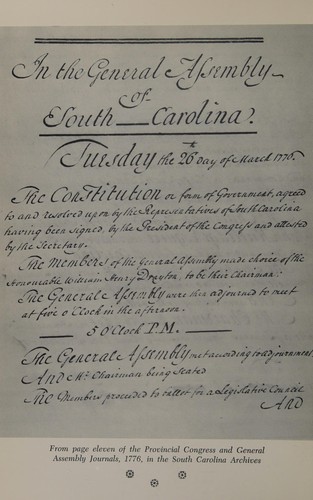 In the General Assembly
of
South Carolina.
Tuesday the 26th day of March 1776.
The Constitution or form of Government, agreed
to and resolved upon by the Representatives of South Carolina
having been signed, by the President of the Congress and attested
by the Secretary.
The Members of the General Assembly made choice of the
Honourable William Henry Drayton, to be their Chairman:
The General Assembly were then adjourned to meet
at five o Clock in the afternoon.
5 O'Clock P.M.
The General Assembly met according to adjournment
AND Mr. Chairman being Seated
The Members proceeded to ballot for a Legislative Council
AND
From page eleven of the Provincial Congress and General
Assembly Journals, 1776, in the South Carolina Archives